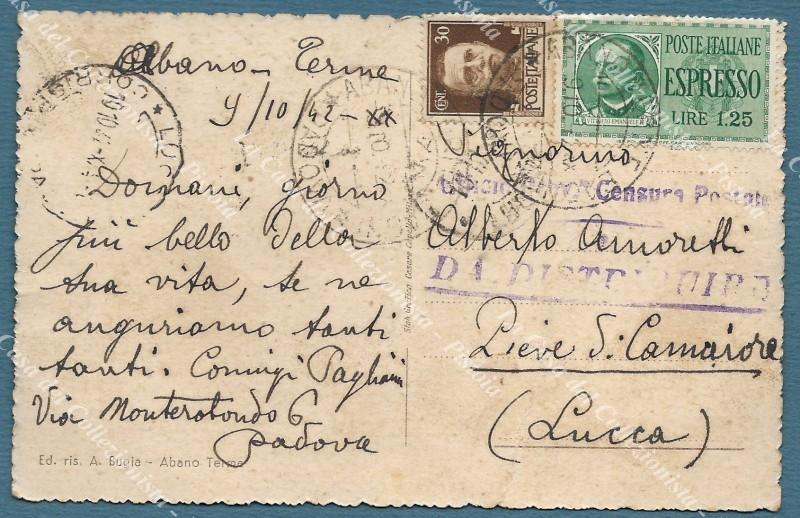 Abano - Terme
9/10/42 - XX
Domani, giorno
più bello della
sua vita, se ne
auguriamo tanti
tanti. Coniugi
Via Monterotondo 6
Padova
Ed. ris. A. Bugia - Abano Terme
CENT. 30
POSTE ITALIANE
POSTE ITALIANE
ESPRESSO
LIRE 1.25
VITT. EMANUELE
Signorino
Censura Postale
Alberto Amoretti
DA DISTRIBUIRE
Pieve di Camaiore
(Lucca)